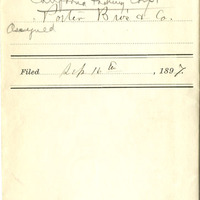 California
Porter Bro's & Co.
Assigned
Filed Sep 16th, 1897.